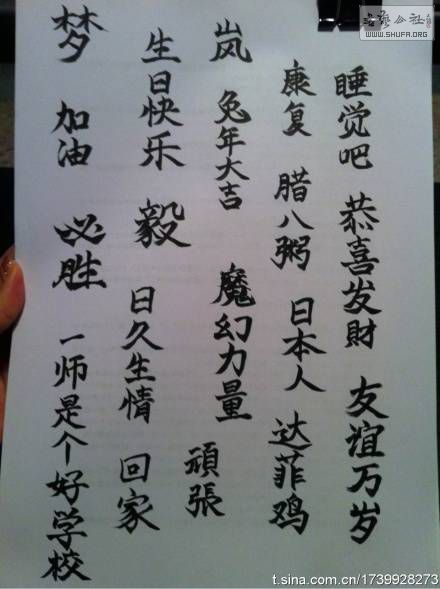 睡觉吧 恭喜发財 友谊万岁
康复 腊八粥 日本人 达菲鸡
岚 兔年大吉 魔幻力量 頑張
生日快乐 毅 日久生情 回家
梦 加油 必胜 一师是个好学校
WWW.SHUFA.ORG
t.sina.com.cn/1739928273